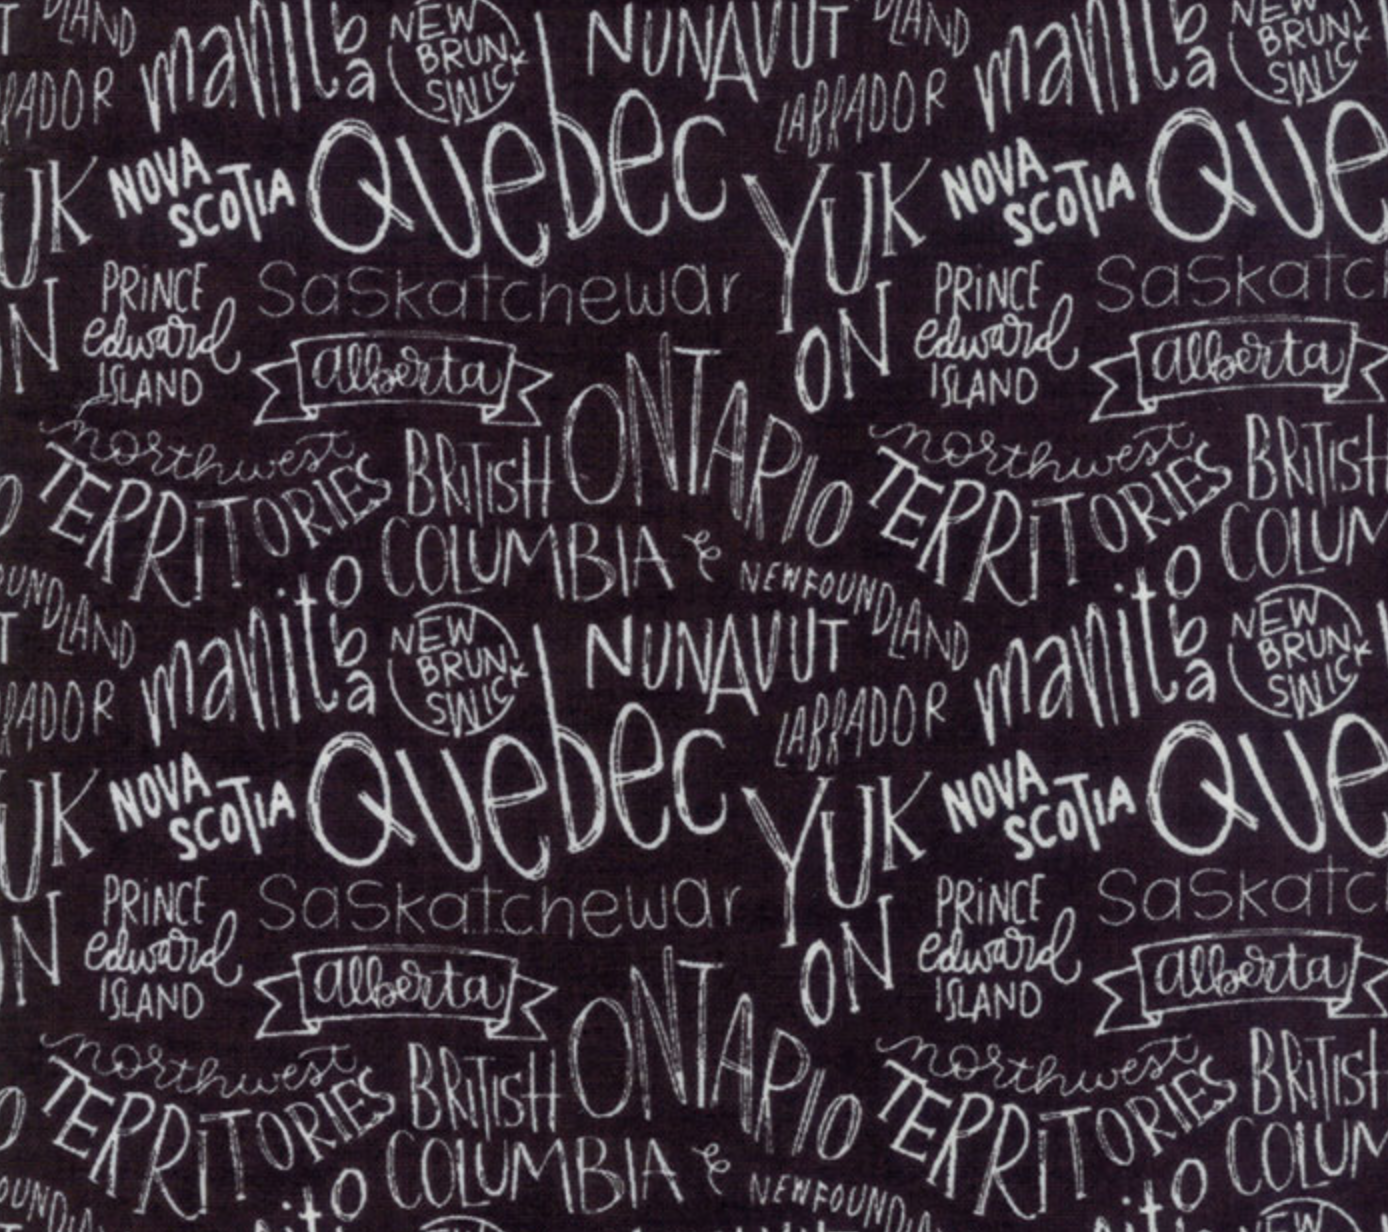 DLAND
manitba
NEW
BRUN
SWICK
NUNAVUT
DLAND
manitba
NEW
BRUN
SWICK
RADOR
LABRADOR
Quebec
Que
UK
NOVA
SCOTIA
YUK
ON
NOVA
SCOTIA
N
PRINCE
edward
ISLAND
Saskatchewar
PRINCE
edward
ISLAND
Saskatc
alberta
alberta
ONTARIO
northwest
TERRITORIES
BRITISH
COLUMBIA &
northwest
TERRITORIES
BRITISH
COLUM
OUNDLAND
NEWFOUNDLAND
manitoba
NEW
BRUN
SWICK
NUNAVUT
manitoba
NEW
BRUN
SWICK
RADOR
LABRADOR
Quebec
Que
UK
NOVA
SCOTIA
YUK
ON
NOVA
SCOTIA
N
PRINCE
edward
ISLAND
Saskatchewar
PRINCE
edward
ISLAND
Saskatc
alberta
alberta
ONTARIO
northwest
TERRITORIES
BRITISH
COLUMBIA &
northwest
TERRITORIES
BRITISH
COLUM
OUNDLA
ito
NEWFOUNDLA
ito